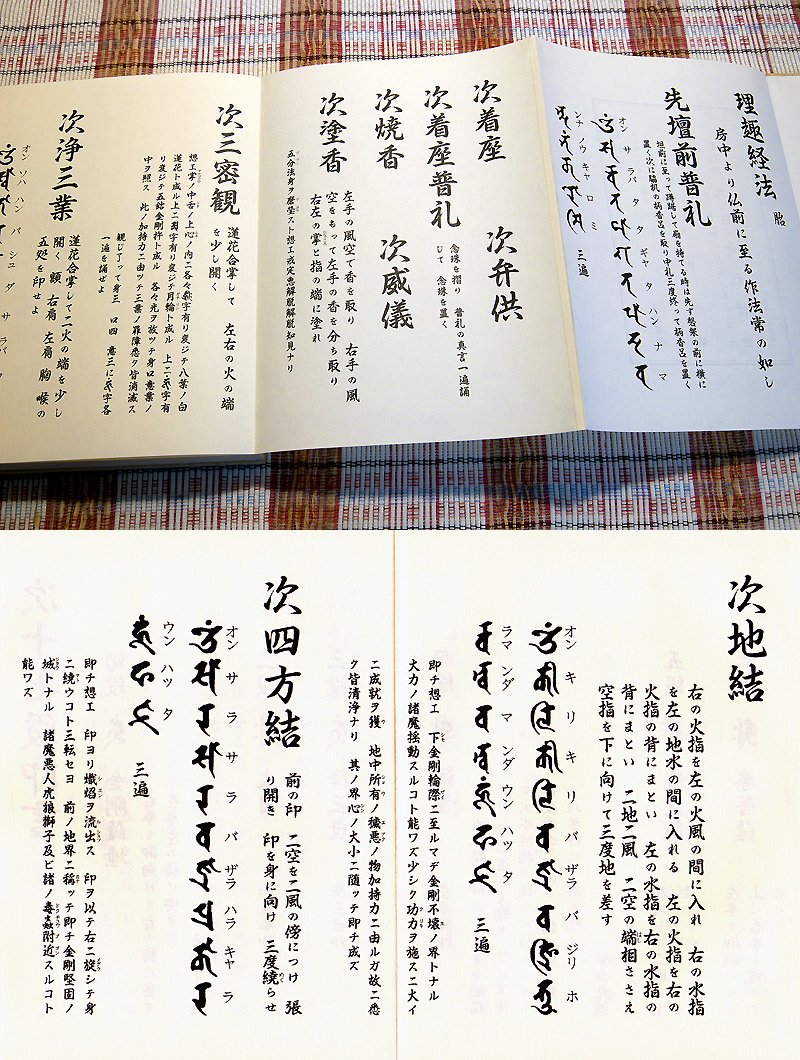 理趣経法 胎
房中より仏前に至る作法常の如し
先壇前普礼
壇前に至って蹲踞して扇を持てる時は先ず怒架の前に横に
置く次に脇机の柄香呂を取り中礼三度終って柄香呂を置く
オン サラバ タタ ギャタ ハン ナ マ
ンナ ノウ キャロ ミ 三遍
次着座 次弁供
次着座普礼 念珠を摺り 普礼の真言一遍誦
じて 念珠を置く
次焼香 次威儀
次塗香 左手の風空で香を取り 右手の風
空をもって左手の香を分ち取り
右左の掌と指の端に塗れ
五分法身ヲ磨瑩スト想エ戒定恵解脱解脱知見ナリ
次三密観 蓮花合掌して 左右の火の端
を少し開く
想エ掌ノ中舌ノ上心ノ内ニ各々字有リ変ジテ八葉ノ白
蓮花ト成ル上ニ字有リ変ジテ月輪ト成ル 上ニ字有
リ変ジテ五鈷金剛杵ト成ル 各々光ヲ放ツテ身口意業ノ
中ヲ照ス 此ノ加持力ニ由ツテ三業ノ罪障悉ク皆消滅ス
観じ了って身三 口四 意三に字各
一遍を誦せよ
次浄三業 蓮花合掌して二火の端を少し
開く 額 右肩 左肩 胸 喉の
五処を印せよ
オン ソハ ハン バ シュ ダ サ ラバ タ
次地結
右の火指を左の火風の間に入れ 右の水指
を左の地水の間に入れる 左の火指を右の
火指の背にまとい 左の水指を右の水指の
背にまとい 二地二風 二空の端相ささえ
空指を下に向けて三度地を差す
オン キリ キリ バ ザラ バ ジリ ホ
ラマ ンダ マ ンダ ウン ハッ タ 三遍
即チ想エ 下金剛輪際ニ至ルマデ金剛不壊ノ界トナル
大力ノ諸魔揺動スルコト能ワズ少シク功力ヲ施スニ大イ
ニ成就ヲ獲 地中所有ノ穢悪ノ物加持力ニ由ルガ故ニ悉
ク皆清浄ナリ 其ノ界心ノ大小ニ随ッテ即チ成ズ
次四方結 前の印 二空を二風の傍につけ 張
り開き 印を身に向け 三度繞らせ
オン サ ラ サ ラ バ ザラ ハラ キャ ラ
ウン ハッ タ 三遍
即チ想エ 印ヨリ熾焰ヲ流出ス 印ヲ以テ右ニ旋シテ身
ニ繞ウコト三転セヨ 前ノ地界ニ稱ッテ即チ金剛堅固ノ
城トナル 諸魔悪人虎狼獅子及ビ諸ノ毒蟲附近スルコト
能ワズ